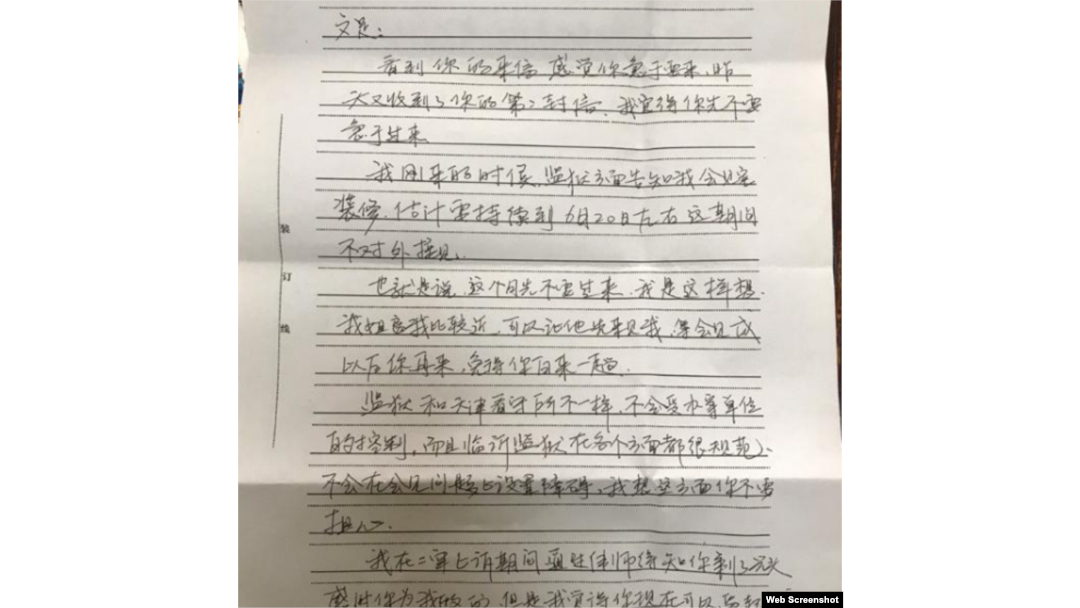 文足：
看到你的来信感觉你急于要来，昨
天又收到了你的第二封信，我觉得你先不要
急于过来
我刚来的时候，监狱方面告知我会见室
装修，估计要持续到6月20日左右这期间
不对外接见。
也就是说，这个月先不要过来，我是这样想，
我姐离我比较近，可以让他先来见我，等会见成
以后你再来，免得你白来一趟。
监狱和天津看守所不一样，不会受办案单位
的控制，而且临沂监狱在各个方面都很规范，
不会在会见问题上设置障碍，我想这方面你不要
担心。
我在二审上诉期间通过律师得知你剃了光头
感谢你为我做的，但是我觉得你现在可以
装
订
线
Web Screenshot